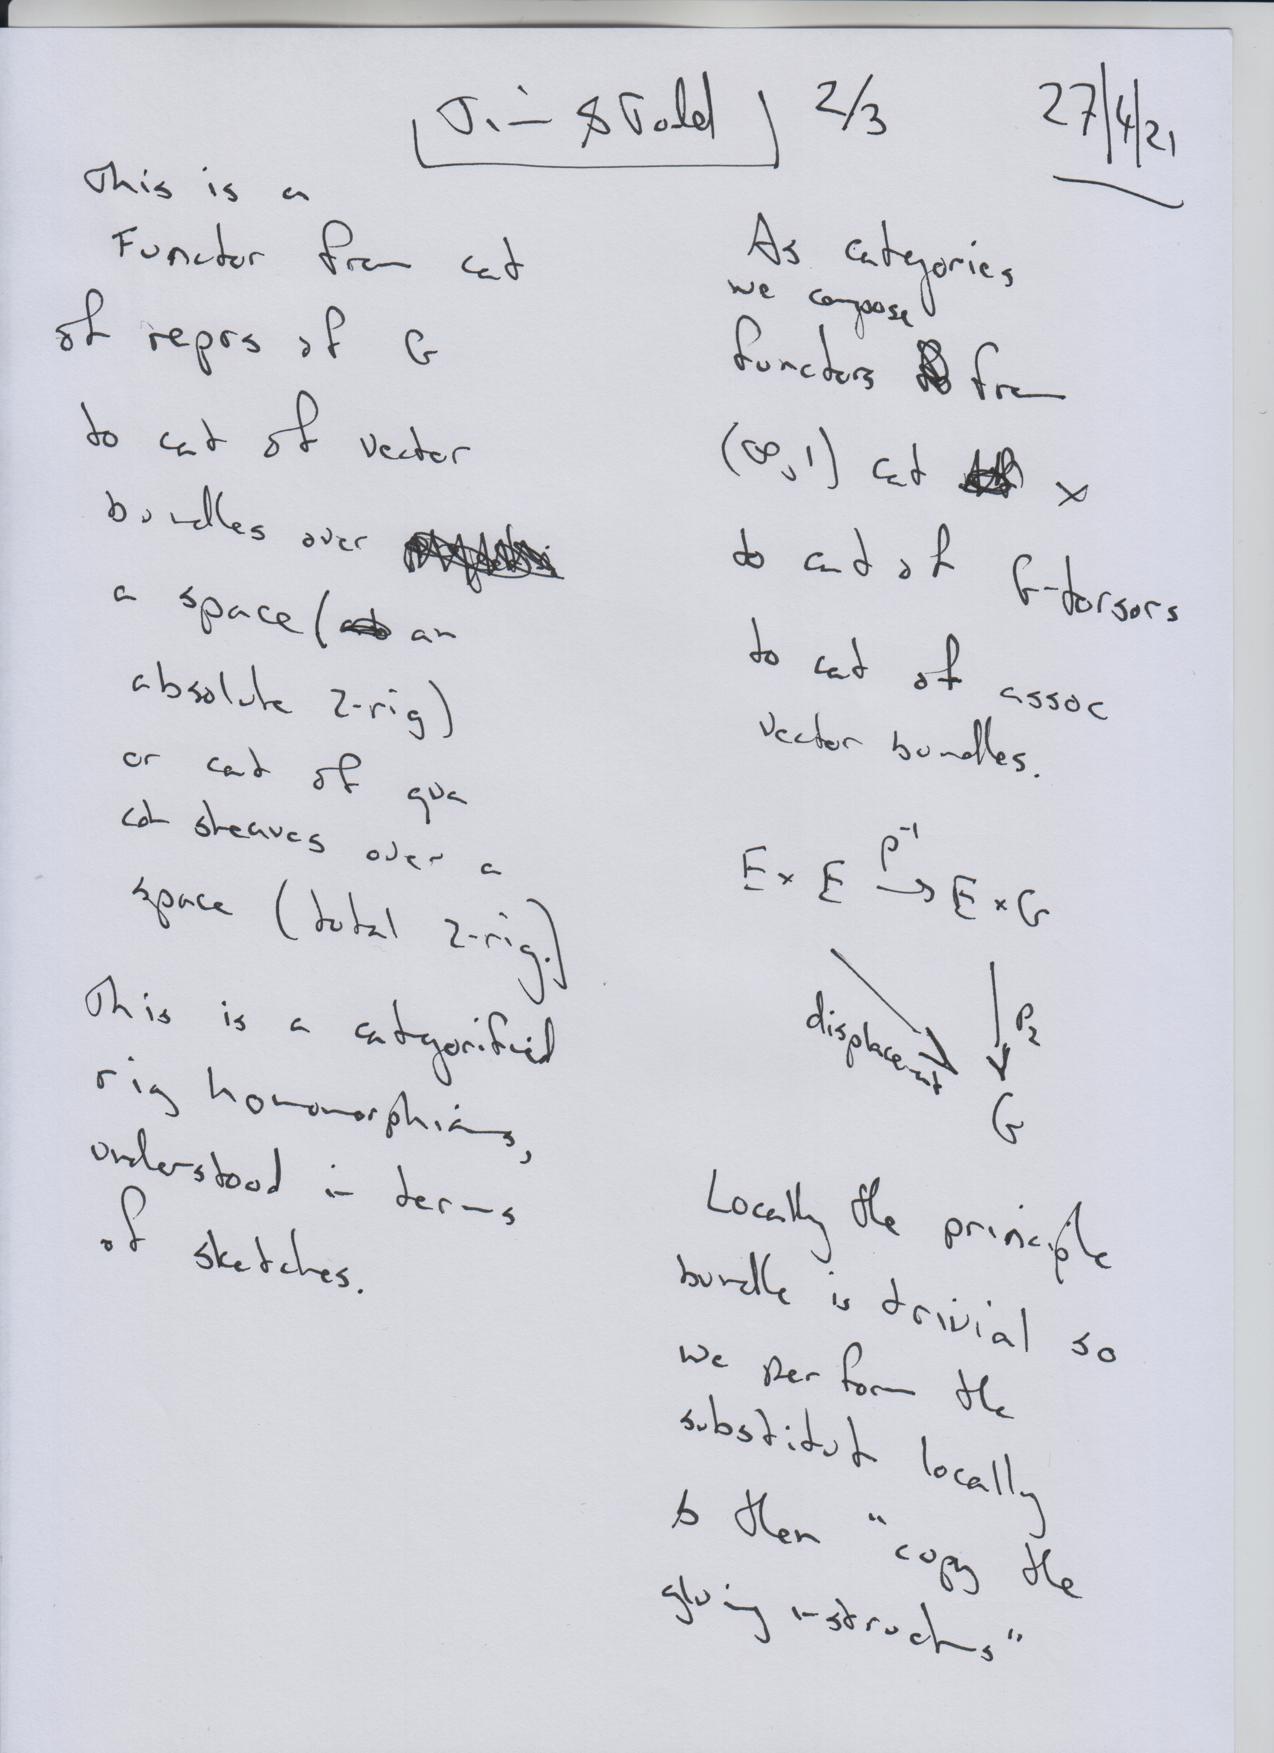 Jim & Todd 2/3 27/4/21
This is a
Functor from cat
of reprs of G
to cat of vector
bundles over
a space ( an
absolute 2-rig)
or cat of qua
coh sheaves over a
space (total 2-rig.)
This is a categorified
rig homomorphism,
understood in terms
of sketches.
As categories
we compose
functors from
(∞,1) cat X
to cat of G-torsors
to cat of assoc
vector bundles.
E × E →^{ρ^{-1}} E × G
displacement
P₂
G
Locally the principle
bundle is trivial so
we perform the
substitut locally
& then "copy the
gluing instructns"